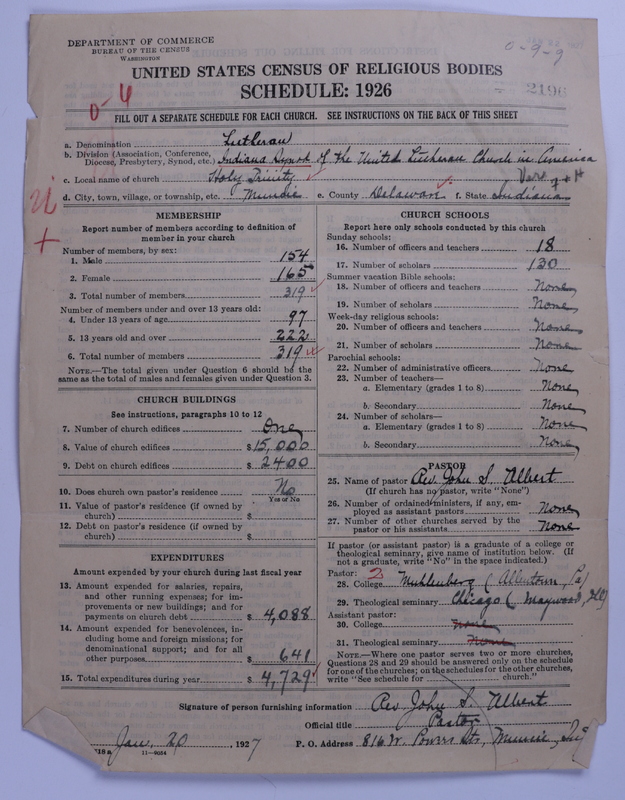 DEPARTMENT OF COMMERCE
BUREAU OF THE CENSUS
WASHINGTON
0-9-9
UNITED STATES CENSUS OF RELIGIOUS BODIES
SCHEDULE: 1926
2196
0-4
FILL OUT A SEPARATE SCHEDULE FOR EACH CHURCH. SEE INSTRUCTIONS ON THE BACK OF THIS SHEET
a. Denomination Lutheran
b. Division (Association, Conference, Diocese, Presbytery, Synod, etc.) Indiana Synod of the United Lutheran Church in America
c. Local name of church Holy Trinity
d. City, town, village, or township, etc. Muncie e. County Delaware f. State Indiana
MEMBERSHIP
Report number of members according to definition of
member in your church
Number of members, by sex:
1. Male 154
2. Female 165
3. Total number of members 319
Number of members under and over 13 years old:
4. Under 13 years of age 97
5. 13 years old and over 222
6. Total number of members 319
NOTE.—The total given under Question 6 should be the
same as the total of males and females given under Question 3.
CHURCH BUILDINGS
See instructions, paragraphs 10 to 12
7. Number of church edifices One
8. Value of church edifices $15,000
9. Debt on church edifices $2400
10. Does church own pastor's residence No
Yes or No
11. Value of pastor's residence (if owned by
church) $
12. Debt on pastor's residence (if owned by
church) $
EXPENDITURES
Amount expended by your church during last fiscal year
13. Amount expended for salaries, repairs,
and other running expenses; for im-
provements or new buildings; and for
payments on church debt $ 4,088
14. Amount expended for benevolences, in-
cluding home and foreign missions; for
denominational support; and for all
other purposes 641
15. Total expenditures during year $ 4,729
CHURCH SCHOOLS
Report here only schools conducted by this church
Sunday schools:
16. Number of officers and teachers 18
17. Number of scholars 130
Summer vacation Bible schools:
18. Number of officers and teachers None
19. Number of scholars None
Week-day religious schools:
20. Number of officers and teachers None
21. Number of scholars None
Parochial schools:
22. Number of administrative officers None
23. Number of teachers—
a. Elementary (grades 1 to 8) None
b. Secondary None
24. Number of scholars—
a. Elementary (grades 1 to 8) None
b. Secondary None
PASTOR
25. Name of pastor Rev. John S. Albert
(If church has no pastor, write "None")
26. Number of ordained ministers, if any, em-
ployed as assistant pastors None
27. Number of other churches served by the
pastor or his assistants None
If pastor (or assistant pastor) is a graduate of a college or
theological seminary, give name of institution below. (If
not a graduate, write "No" in the space indicated.)
Pastor: 3
28. College Muhlenberg (Allentown, Pa)
29. Theological seminary Chicago (Maywood, Ill)
Assistant pastor:
30. College None
31. Theological seminary None
NOTE.—Where one pastor serves two or more churches,
Questions 28 and 29 should be answered only on the schedule
for one of the churches; on the schedules for the other churches,
write "See schedule for church."
Signature of person furnishing information Rev. John S. Albert
Official title Pastor
Jan. 20, 1927 P. O. Address 816 W. Powers St., Muncie, Ind
11—9054